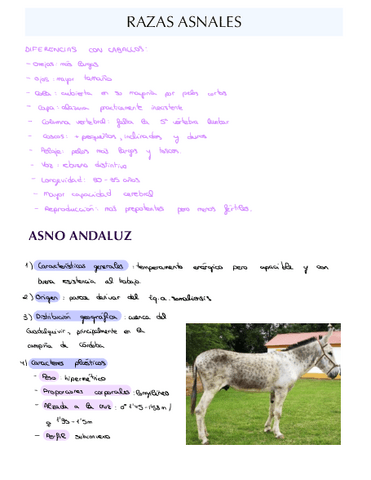 RAZAS ASNALES
DIFERENCIAS CON CABALLOS:
- orejas: más largas
- ojos: mayor tamaño
- cola: cubierta en su mayoría por pelos cortos
- Capa: alazana prácticamente inexistente
- Columna vertebral: falta la 5ª vértebra lumbar
- Cascos: + pequeños, inclinados y duros
- Pelaje: pelos más largos y toscos
- Voz: rebuzno distintivo
- Longevidad: 30 - 35 años
- Mayor capacidad cerebral
- Reproducción: más prepotentes pero menos fértiles.
ASNO ANDALUZ
1) Características generales: temperamento enérgico pero apacible y con
buena resistencia al trabajo.
2) Origen: parece derivar del E.q.a. somaliensis
3) Distribución geográfica: cuenca del
Guadalquivir, principalmente en la
campiña de Córdoba
4) Caracteres plásticos
- Peso hipermétrico
- Proporciones corporales: longilíneo
- Alzada a la cruz: ♂ 1'45-
y 1'35-1'5m
- Perfil subconvexo